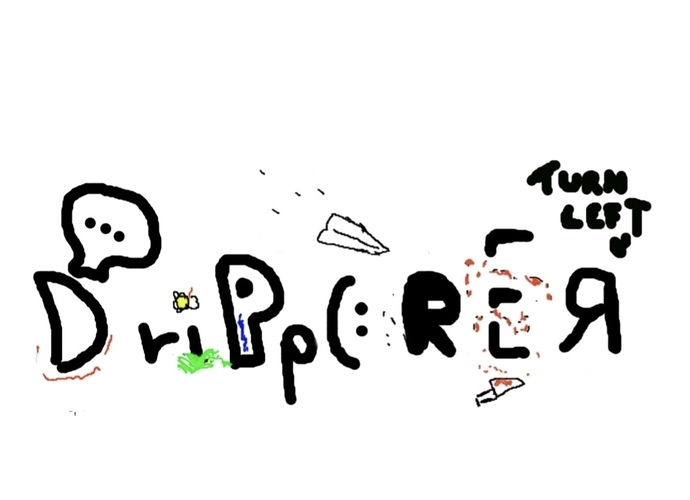 TURN
LEFT
DriPp(:RER